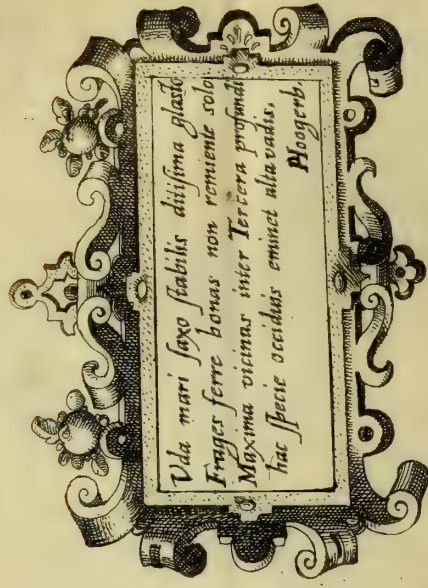 Vda mari ſaxo ſtabilis ditiſsima glasto
Frages ferre bonas non renuente solo
Maxima vicinas inter Tercera profundi
hac ſpecie occiduis eminet alta vadis.
PHoogerb.